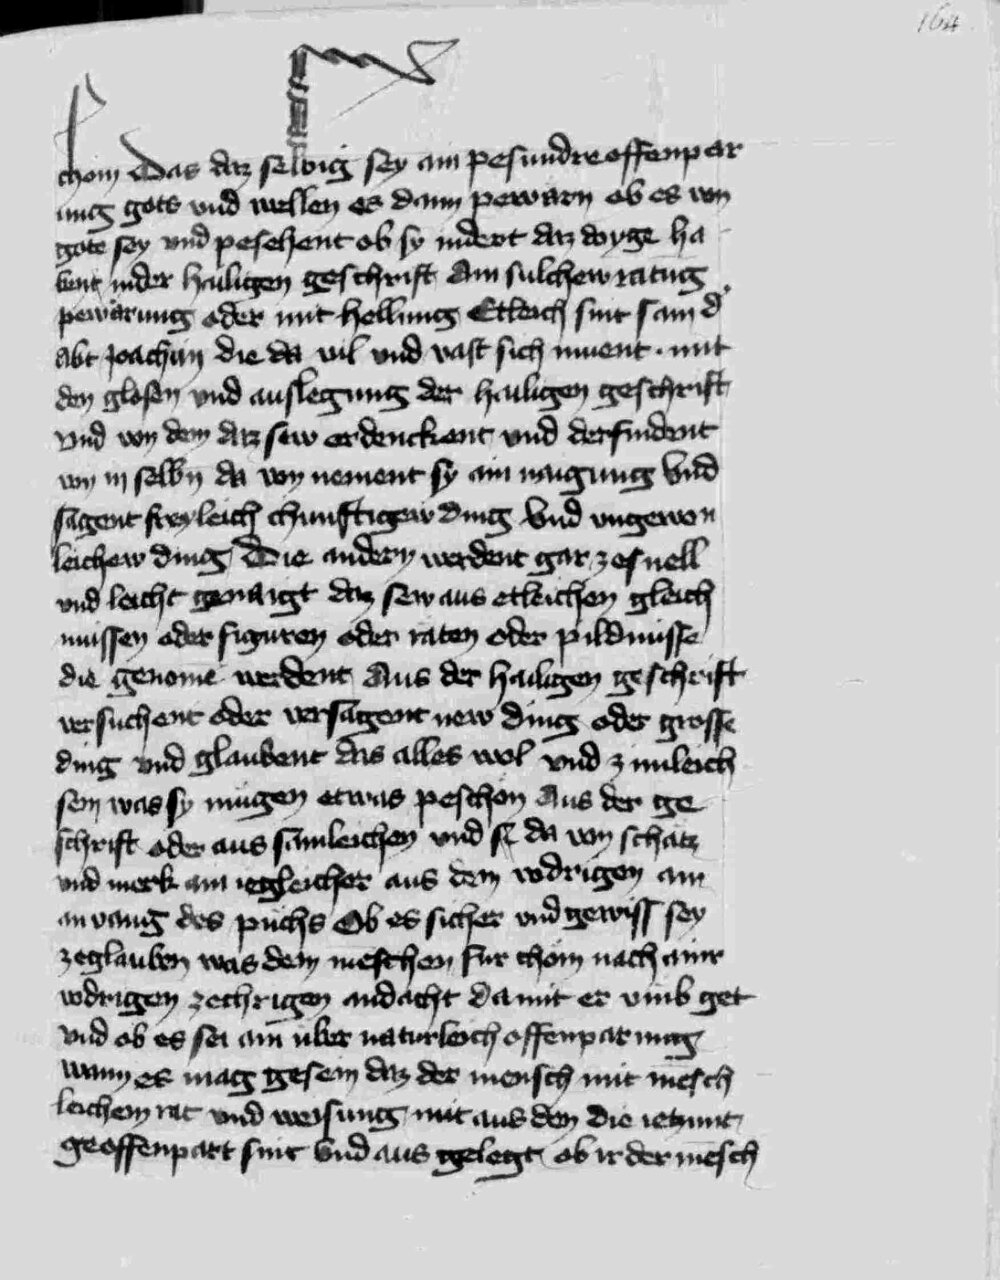 164
chom Das daz selbig sey ain pesundre offenpar
ung gots und wellen es dann pewarn ob es von
gote sey und pesehent ob sy indert daz doyge ha
bent inder hailigen geschrift Ain sulchew ratung
pewarung oder mit hellung Etleich sint sam d'
abt Joachim die da vil und vast sich muent . mit
den glosen und auslegung der hailigen geschrift
und von dem daz sew erdenckent und derfindent
von in selbn da von nement sy ain naigung Und
sagent freyleich chunftigew ding Und ungewon
leichew ding Die andern werdent gar zesnell
und leicht genaigt daz sew aus etleichen gleich
nussen oder figuren oder raten oder pildnusse
die genome werdent Aus der hailigen geschrift
versuchent oder versagent new ding oder grosse
ding und glaubent das alles wol und zimleich
sein was sy mugen etwas peschon Aus der ge
schrift oder aus samleichen und da von schatz
und merk ain iegleicher aus dem vodrigen am
anvang des puchs Ob es sicher und gewiss sey
zeglauben was dem meschen fur chom nach ainr
vodrigen zechrigen andacht damit er umb get
und ob es sei ain uber naturleich offenparung
wann es mag gesein daz der mensch mit mesch
leichem rat und weisung mit aus den die ietzunt
geoffenpart sint Und aus gelegt ob ir der mesch